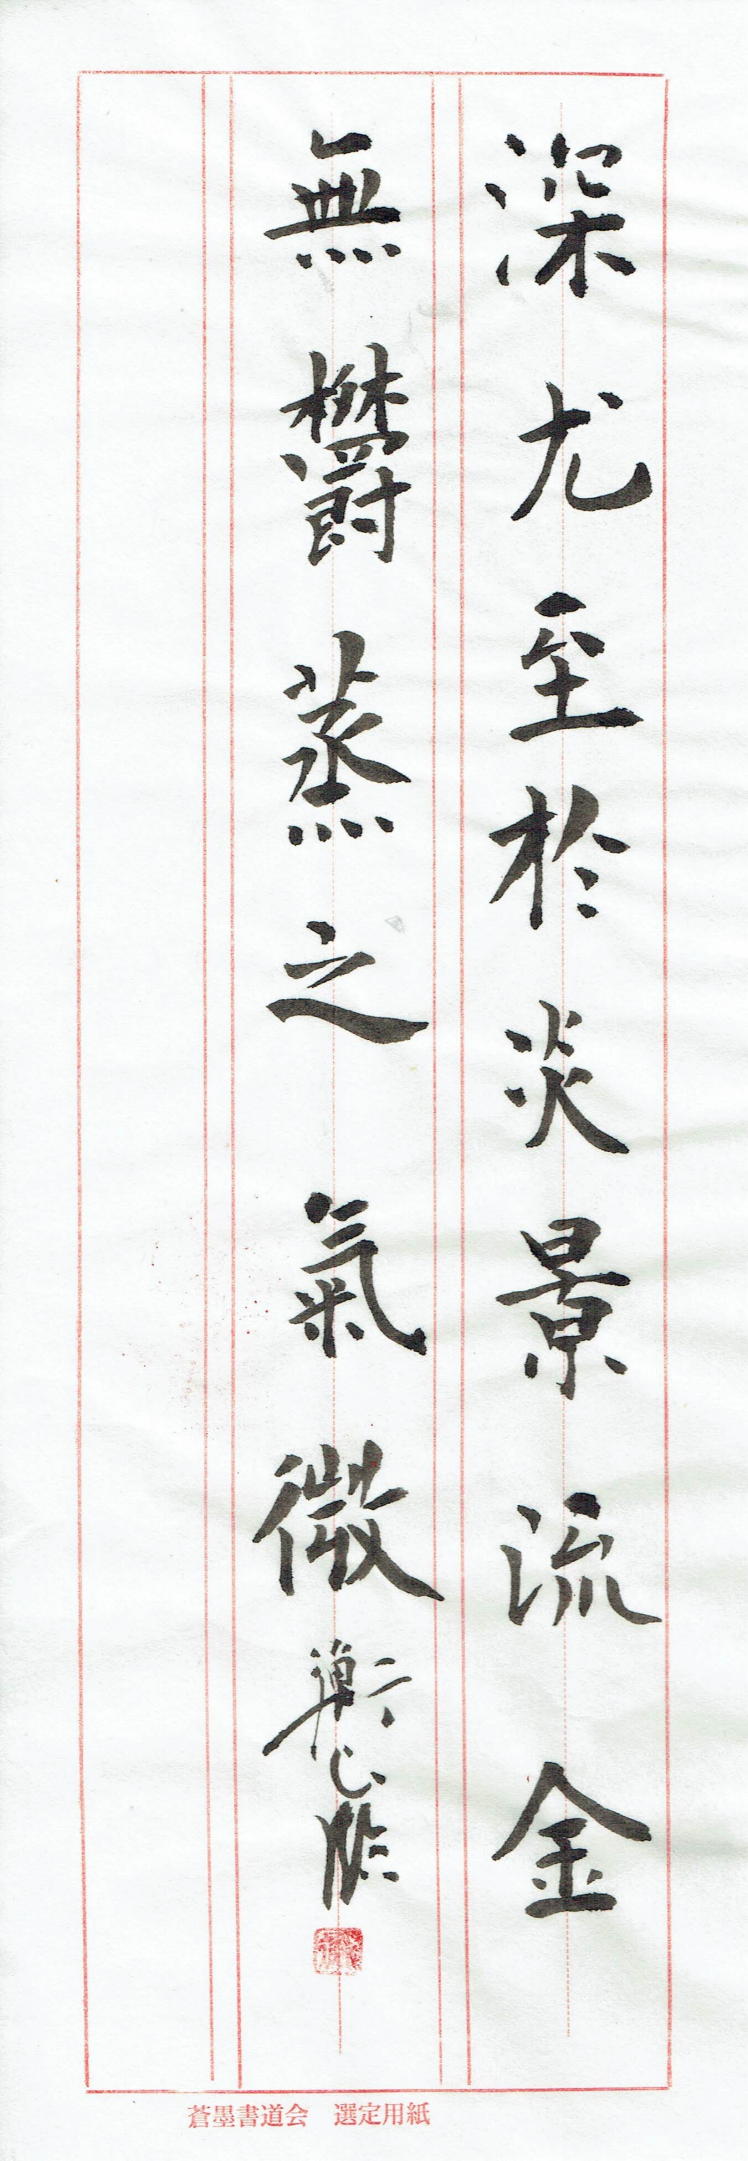 深尤至於炎景流金
無欝蒸之氣微
蒼墨書道会 選定用紙